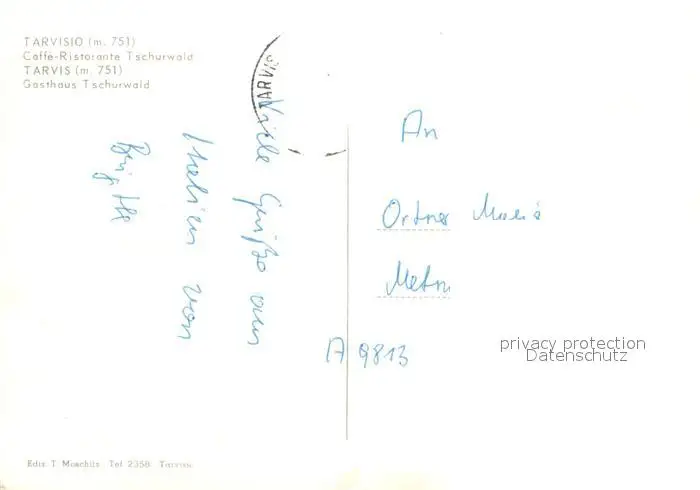 TARVISIO (m. 751)
Caffè-Ristorante Tschurwald
TARVIS (m. 751)
Gasthaus Tschurwald
TARVIS
Viele Grüße aus
Italien von
Brigitte
An
Ortner Maria
A 9813
privacy protection
Datenschutz
Ediz. T. Moschitz Tel 2358 Tarvisio